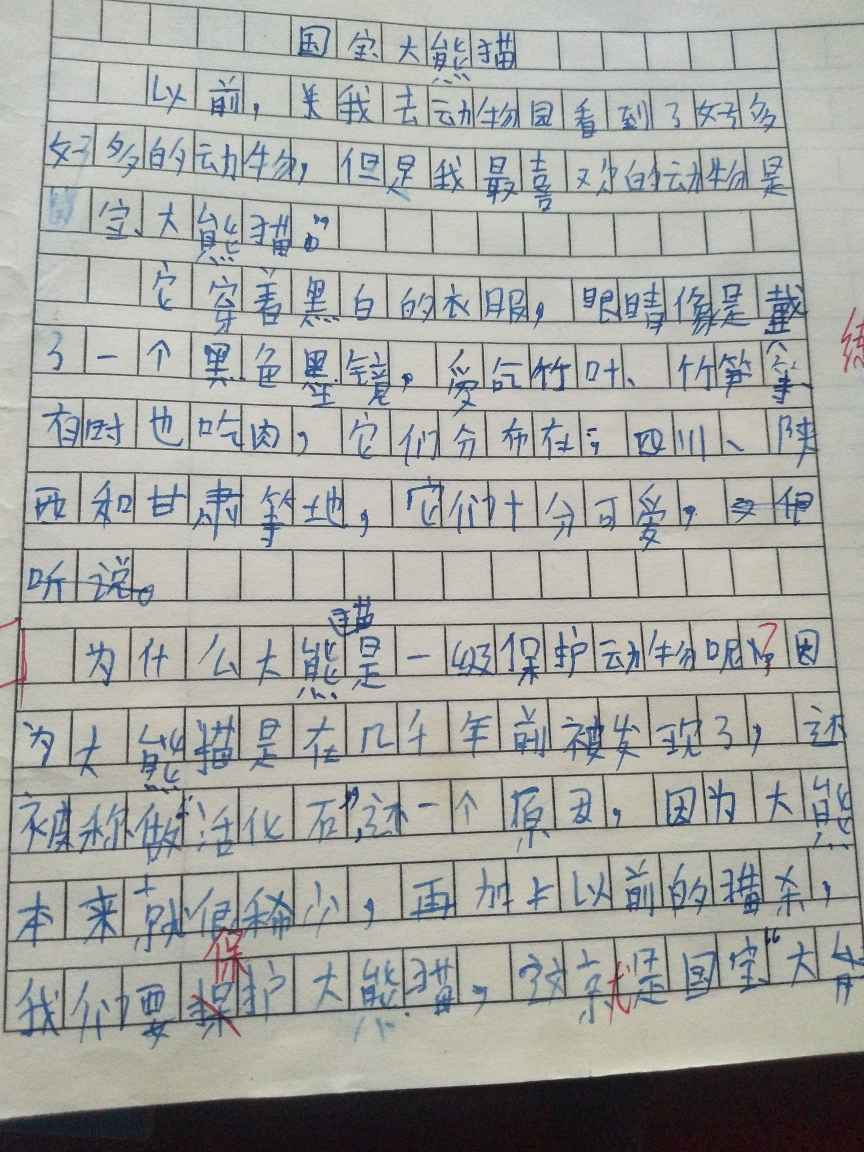 国宝大熊猫
以前，我去动物园看到了好多
好多的动物，但是我最喜欢的动物是
国宝大熊猫。"
它穿着黑白的衣服，眼睛像是戴
了一个黑色墨镜，爱吃竹叶、竹笋等
有时也吃肉，它们分布在；四川、陕
西和甘肃等地，它们十分可爱，但
听说。
猫
为什么大熊是一级保护动物呢？因
为大熊猫是在几千年前被发现了，还
被称做"活化石"，还一个原因，因为大熊
本来就很稀少，再加上以前的猎杀，
保
我们要保护大熊猫，这就是国宝"大
练